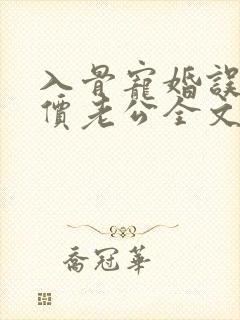 入骨寵婚誤
價老公全文
喬冠華